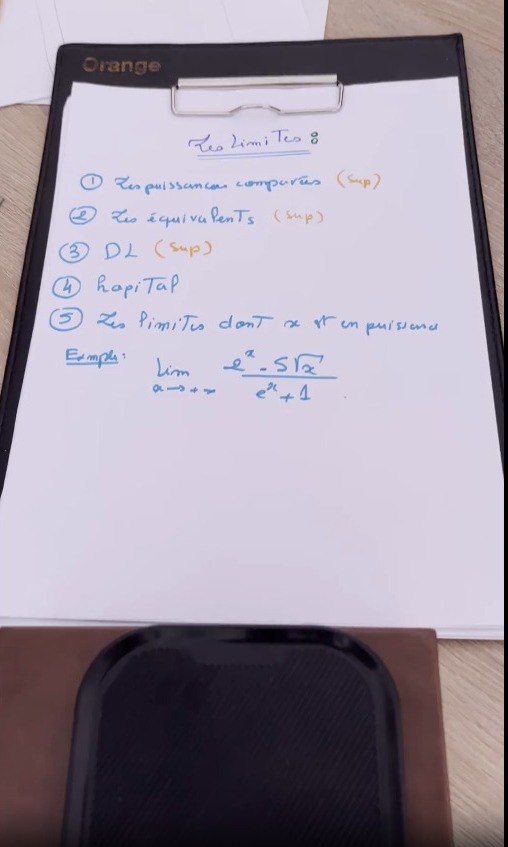 Orange
Les Limites :
① Les puissances comparées (sup)
② Les équivalents (sup)
③ DL (sup)
④ hopital
⑤ Les limites dont x est en puissance
Exmple :
lim x→+∞ (e^x - 5√x) / (e^x + 1)